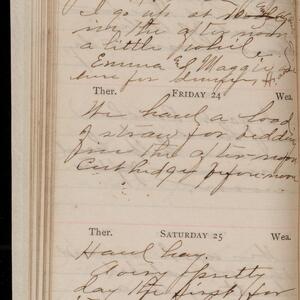 I go up at
in the after noon
a little while
Emma & Maggie
here for
Ther. FRIDAY 24 Wea.
We haul a load
of straw for bedding
fine this after-noon
Cut hedge fore-noon
Ther. SATURDAY 25 Wea.
Haul hay.
Glory pretty
day the first for